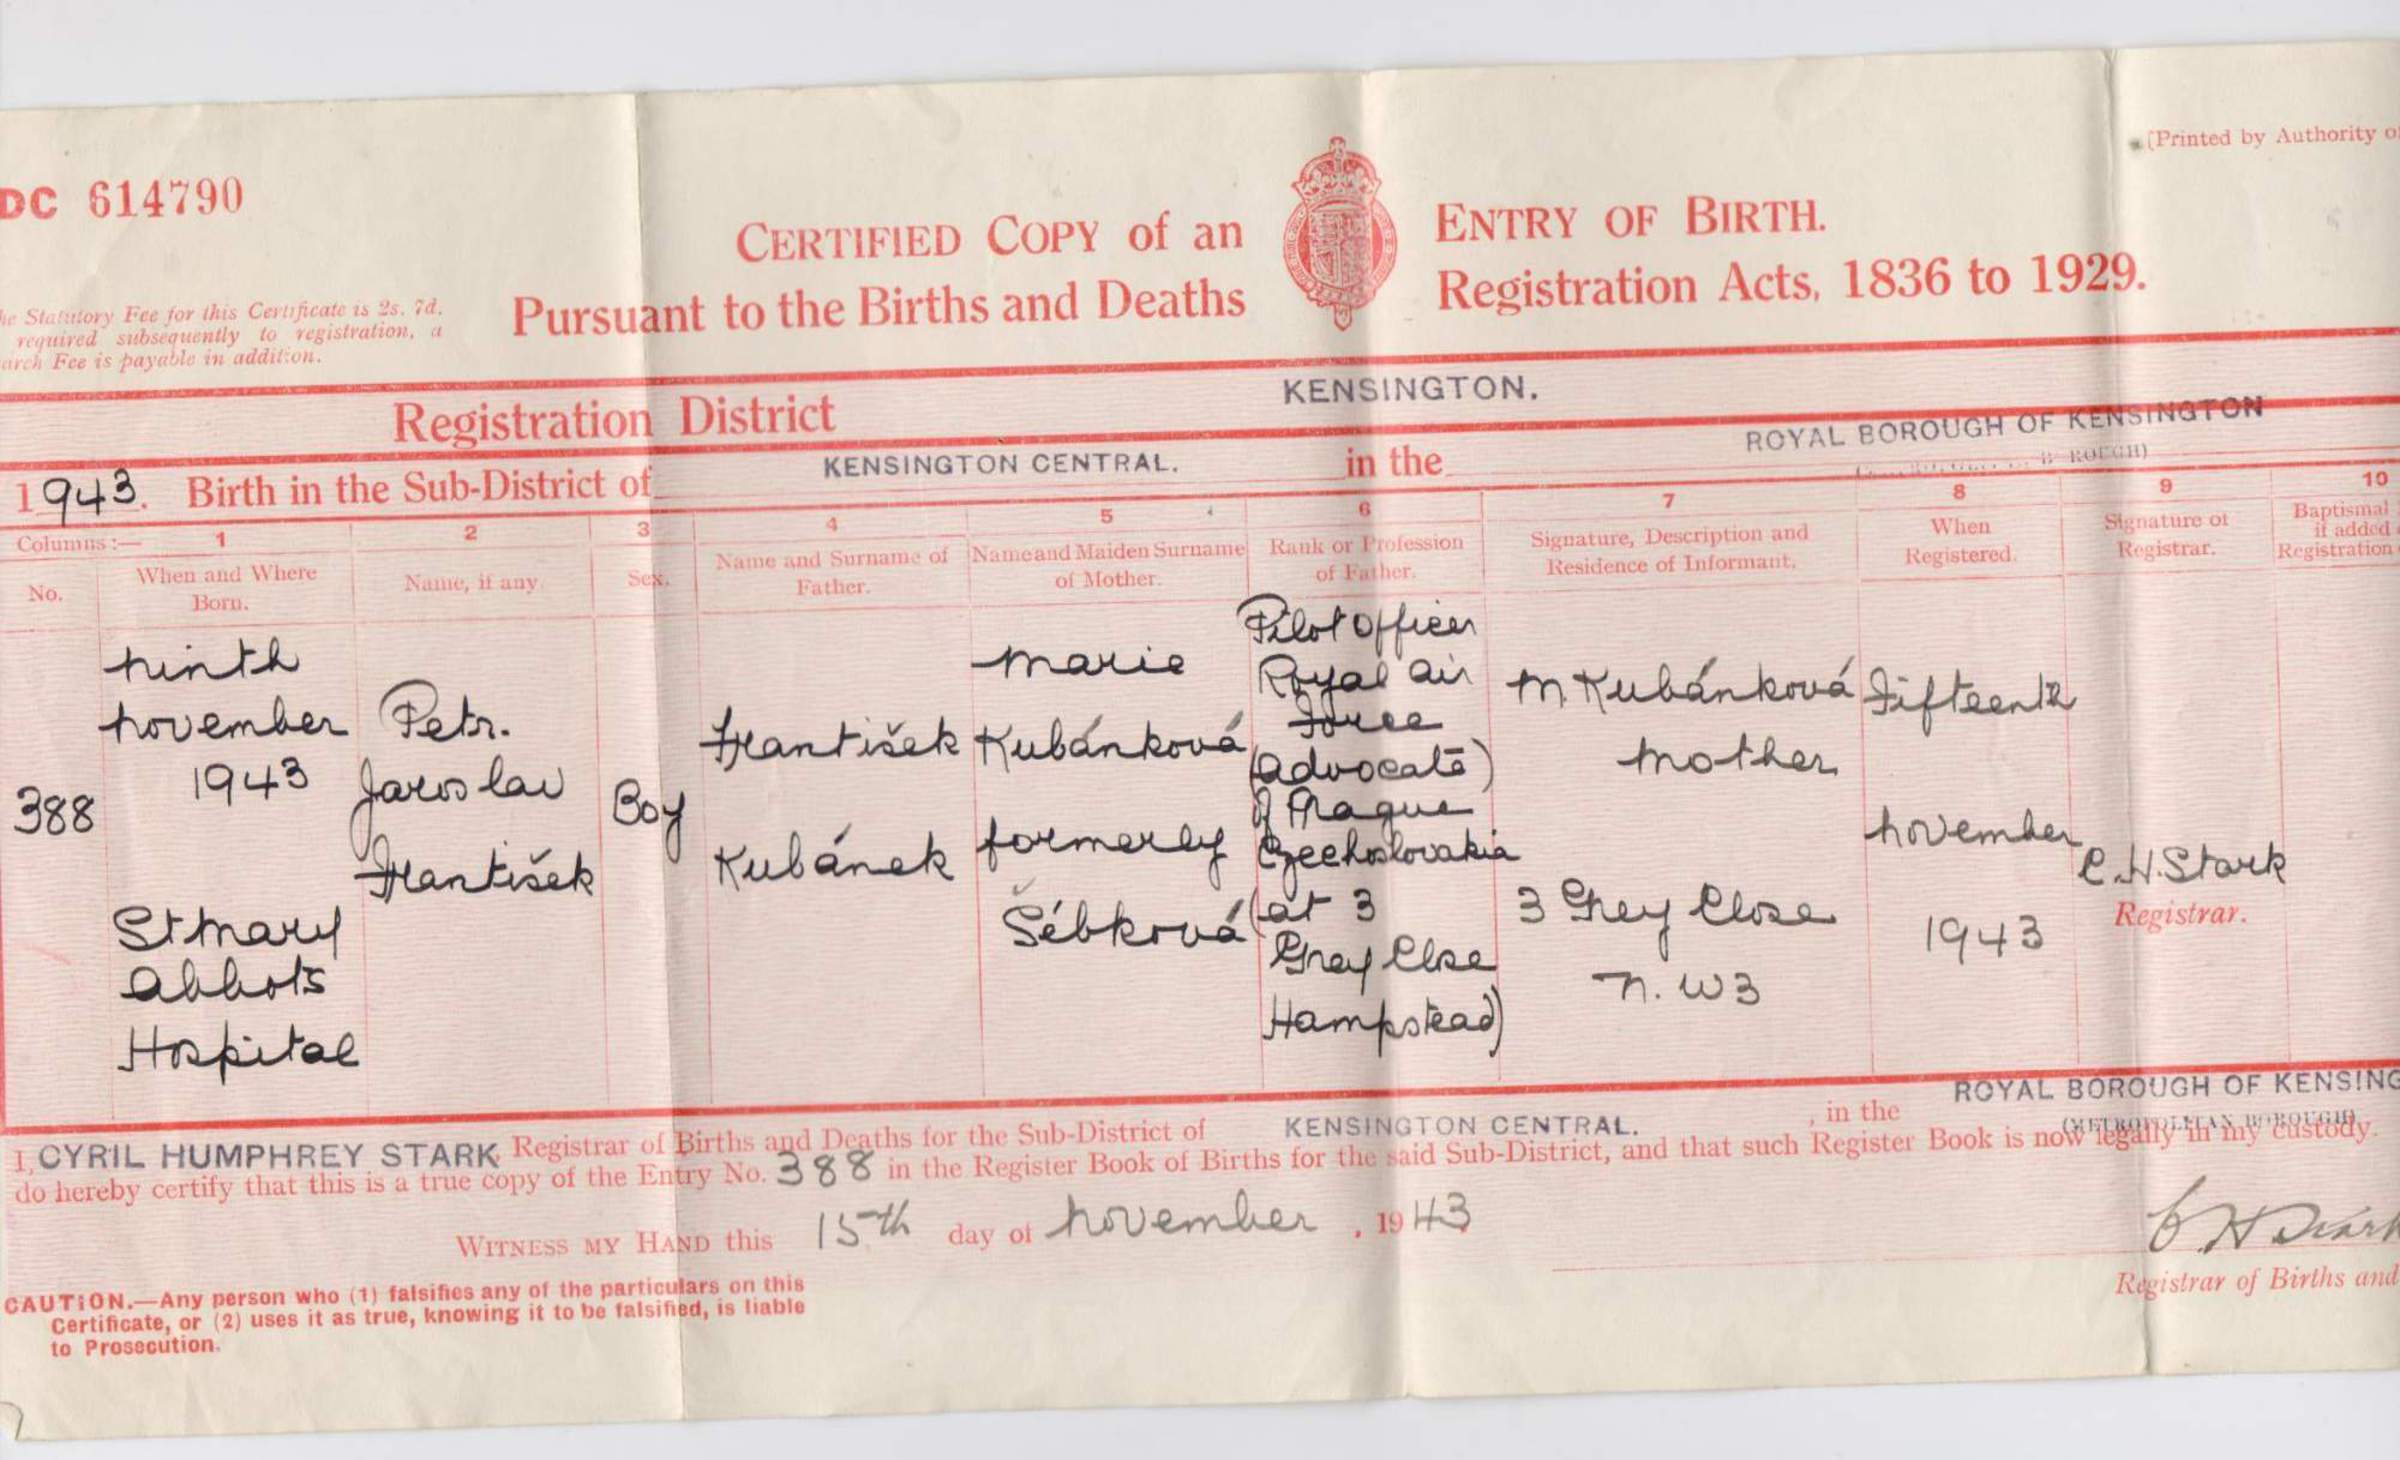 (Printed by Authority
DC 614790
CERTIFIED COPY of an ENTRY OF BIRTH.
Pursuant to the Births and Deaths Registration Acts, 1836 to 1929.
he Statutory Fee for this Certificate is 2s. 7d.
required subsequently to registration, a
arch Fee is payable in addition.
Registration District KENSINGTON.
1943. Birth in the Sub-District of KENSINGTON CENTRAL. in the ROYAL BOROUGH OF KENSINGTON
Columns:— 1 2 3 4 5 6 7 8 9 10
No.
When and Where
Born.
Name, if any.
Sex.
Name and Surname of
Father.
Name and Maiden Surname
of Mother.
Rank or Profession
of Father.
Signature, Description and
Residence of Informant.
When
Registered.
Signature of
Registrar.
Baptismal
if added
Registration
388
Ninth
November
1943
St Mary
Abbots
Hospital
Petr.
Jaroslav
František
Boy
František
Kubánek
Marie
Kubánková
formerly
Šébková
Pilot Officer
Royal Air
Force
(Advocate)
of Prague
Czechoslovakia
(at 3
Grey Close
Hampstead)
M. Kubánková
Mother
3 Grey Close
N. W3
Fifteenth
November
1943
C. H. Stark
Registrar.
I, CYRIL HUMPHREY STARK Registrar of Births and Deaths for the Sub-District of KENSINGTON CENTRAL. , in the ROYAL BOROUGH OF KENSING
(METROPOLITAN BOROUGH)
do hereby certify that this is a true copy of the Entry No. 388 in the Register Book of Births for the said Sub-District, and that such Register Book is now legally in my custody.
WITNESS MY HAND this 15th day of November , 1943
C H Stark
Registrar of Births and
CAUTION.—Any person who (1) falsifies any of the particulars on this
Certificate, or (2) uses it as true, knowing it to be falsified, is liable
to Prosecution.